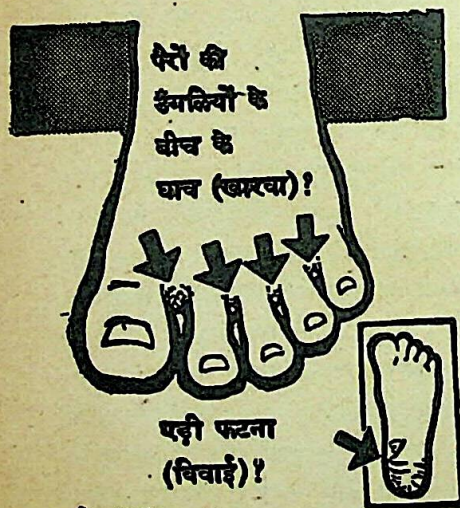 पैरों की
उंगलियों के
बीच के
घाव (खारवा)!
एड़ी फटना
(विवाई)!